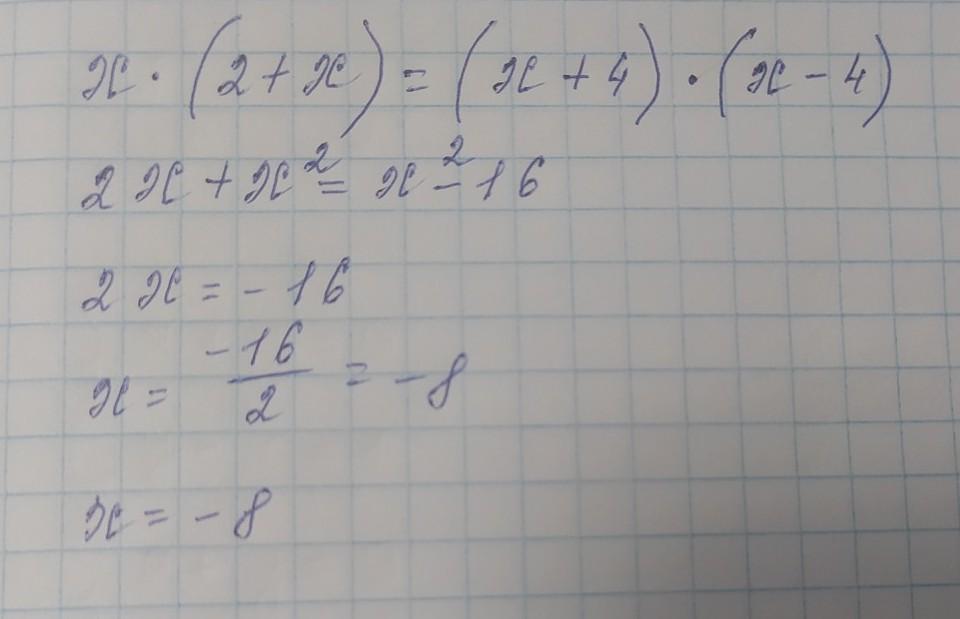 x · (2 + x) = (x + 4) · (x - 4)
2x + x² = x² - 16
2x = -16
x = -16/2 = -8
x = -8